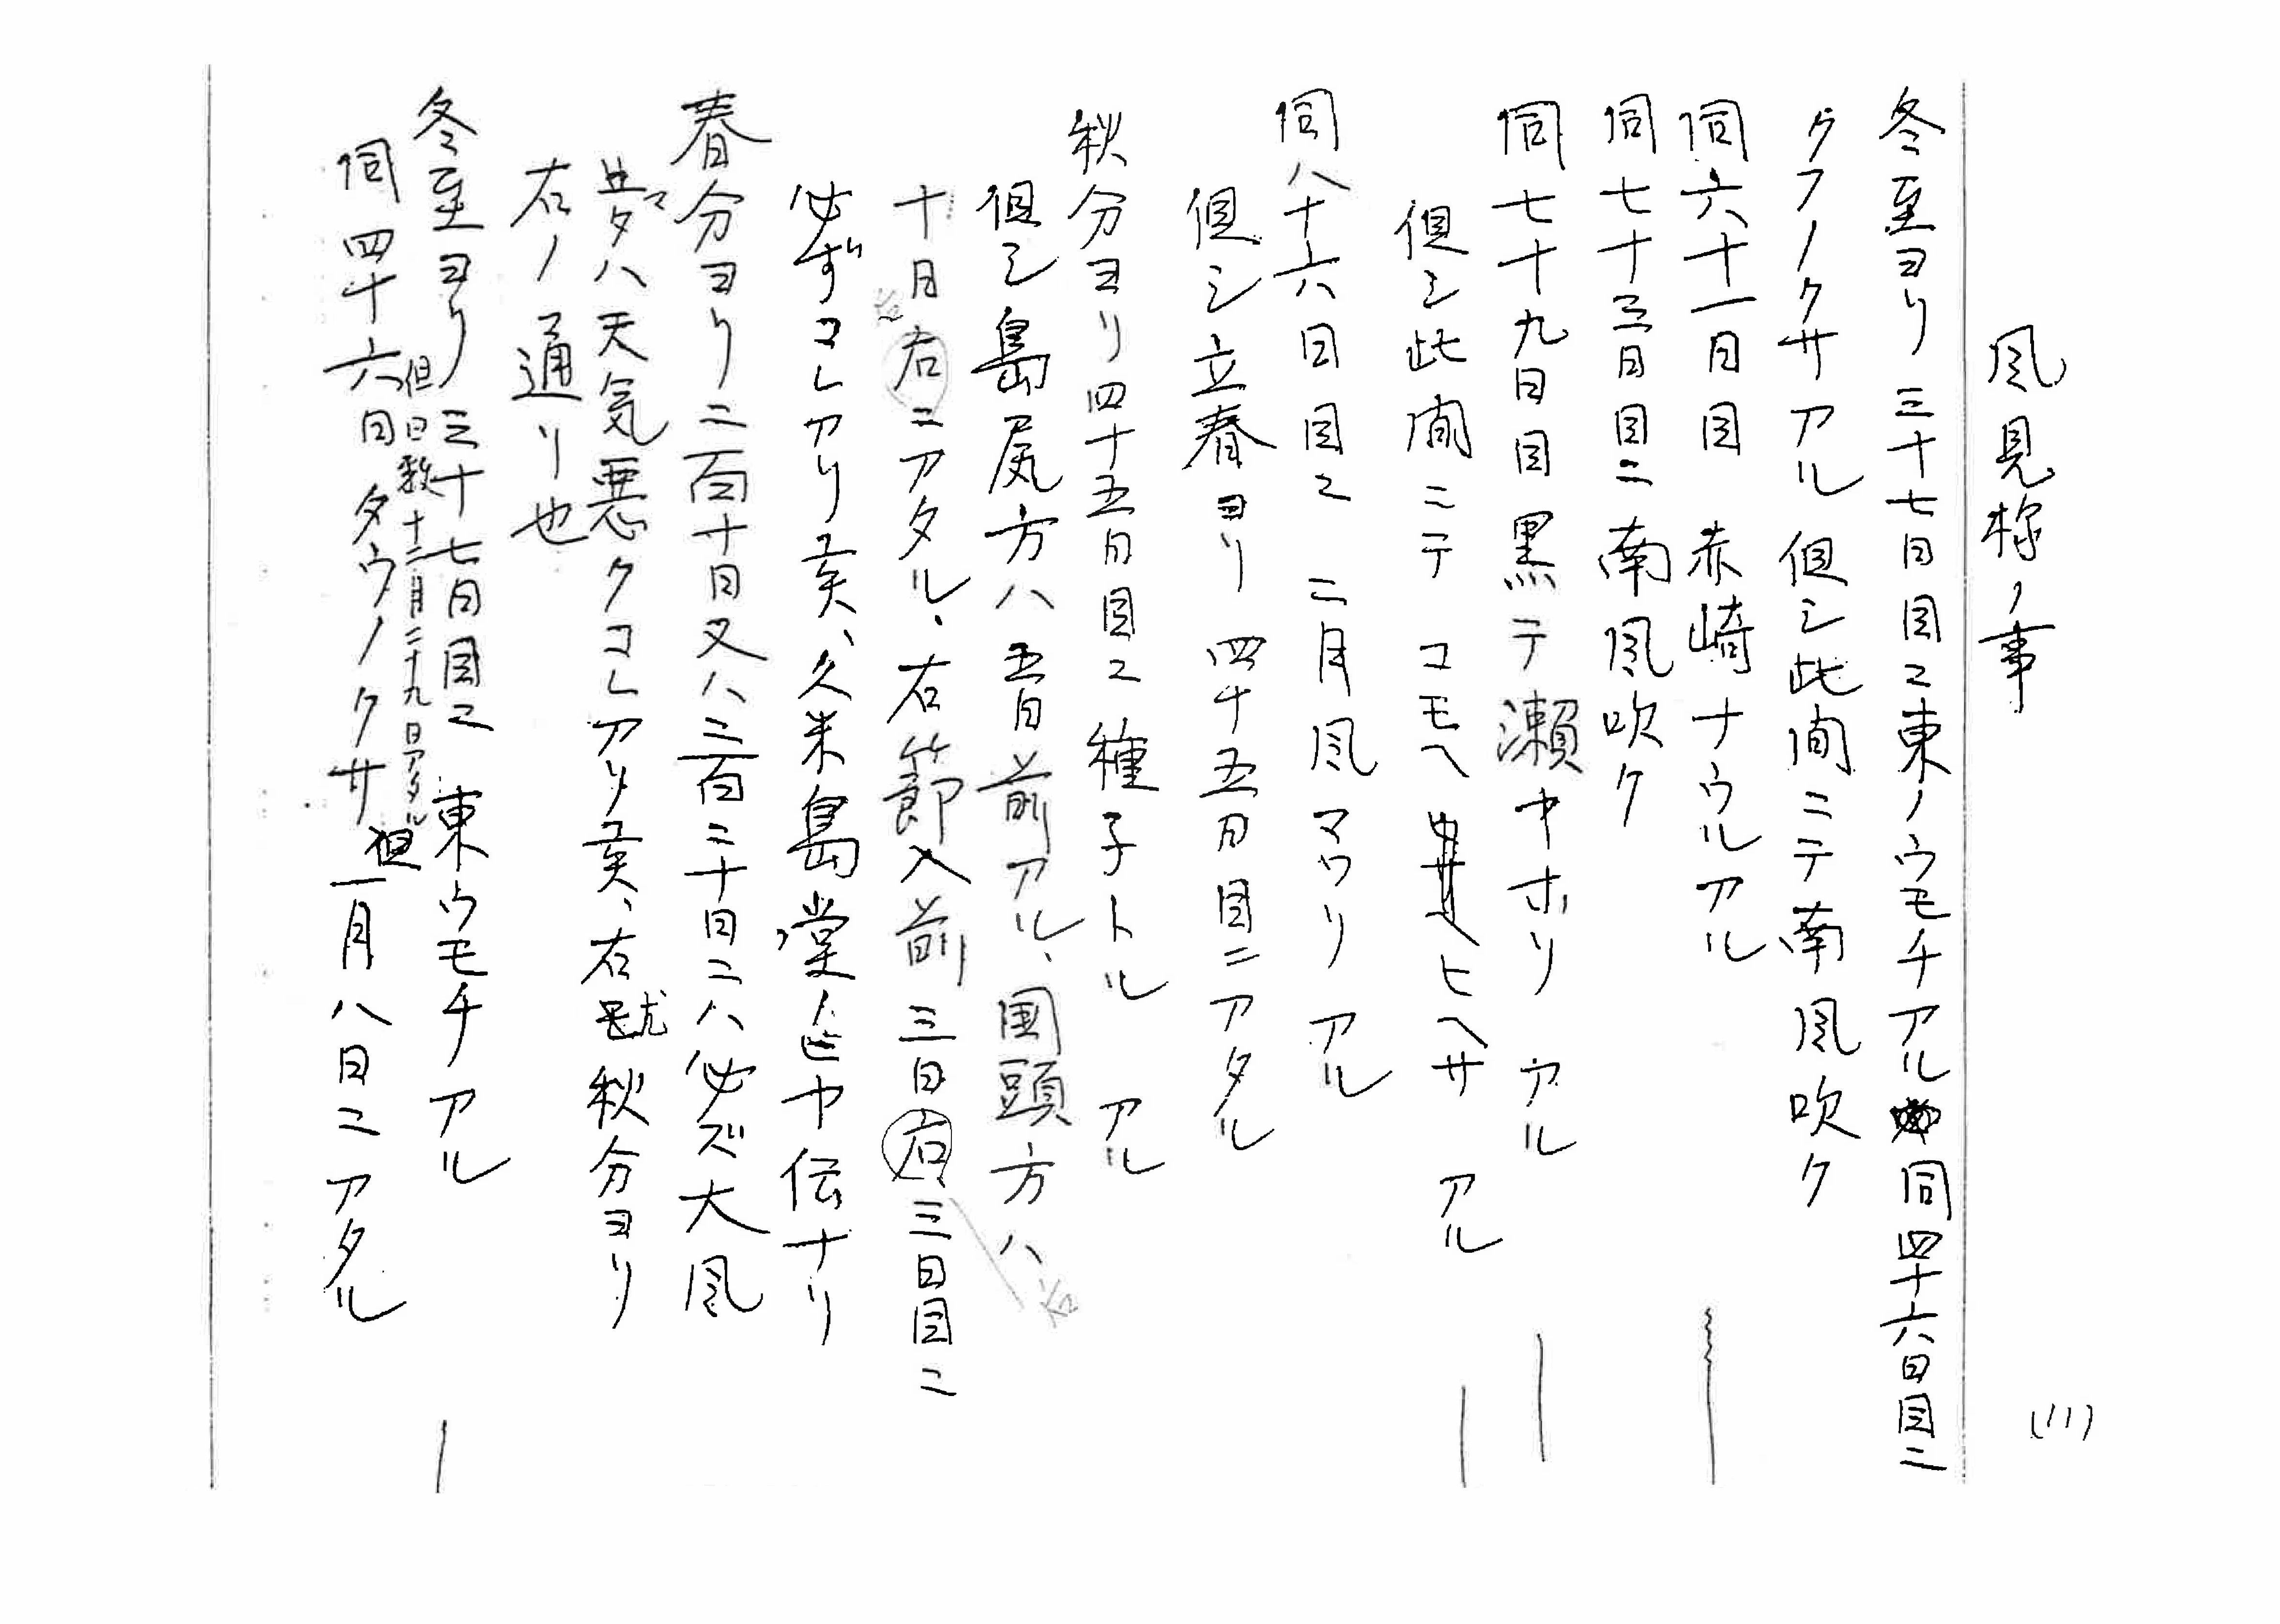 風見様ノ事
冬至ヨリ三十七日目ニ東ノウモチアル同四十六日目ニ
タフノクサアル但シ此間ニテ南風吹ク
同六十一日目 赤崎ナウルアル
同七十三日目ニ南風吹ク
同七十九日目黒テ瀬ヤホリ アル
但シ此間ニテ コモヘ ヒヘサ アル
同八十六日目ニ 二月風マワリアル
但シ立春ヨリ四十五日目ニアタル
秋分ヨリ四十五日目ニ種子トル アル
但シ島尻方ハ五日前アル、国頭方ハ
十月右ニアタル、右節入前三日右三日目ニ
必ずコレアリ候、久米島堂ノ ヤ伝ナリ
春分ヨリ二百十日又ハ三百二十日ニハ必ズ大風
ハ天気悪クコレアリ候、右 秋分ヨリ
右ノ通リ也
冬至ヨリ三十七日目ニ 東ウモチアル
但日数十二月二十九日アタル
同四十六日タウノクサ但一月八日ニアタル
(11)